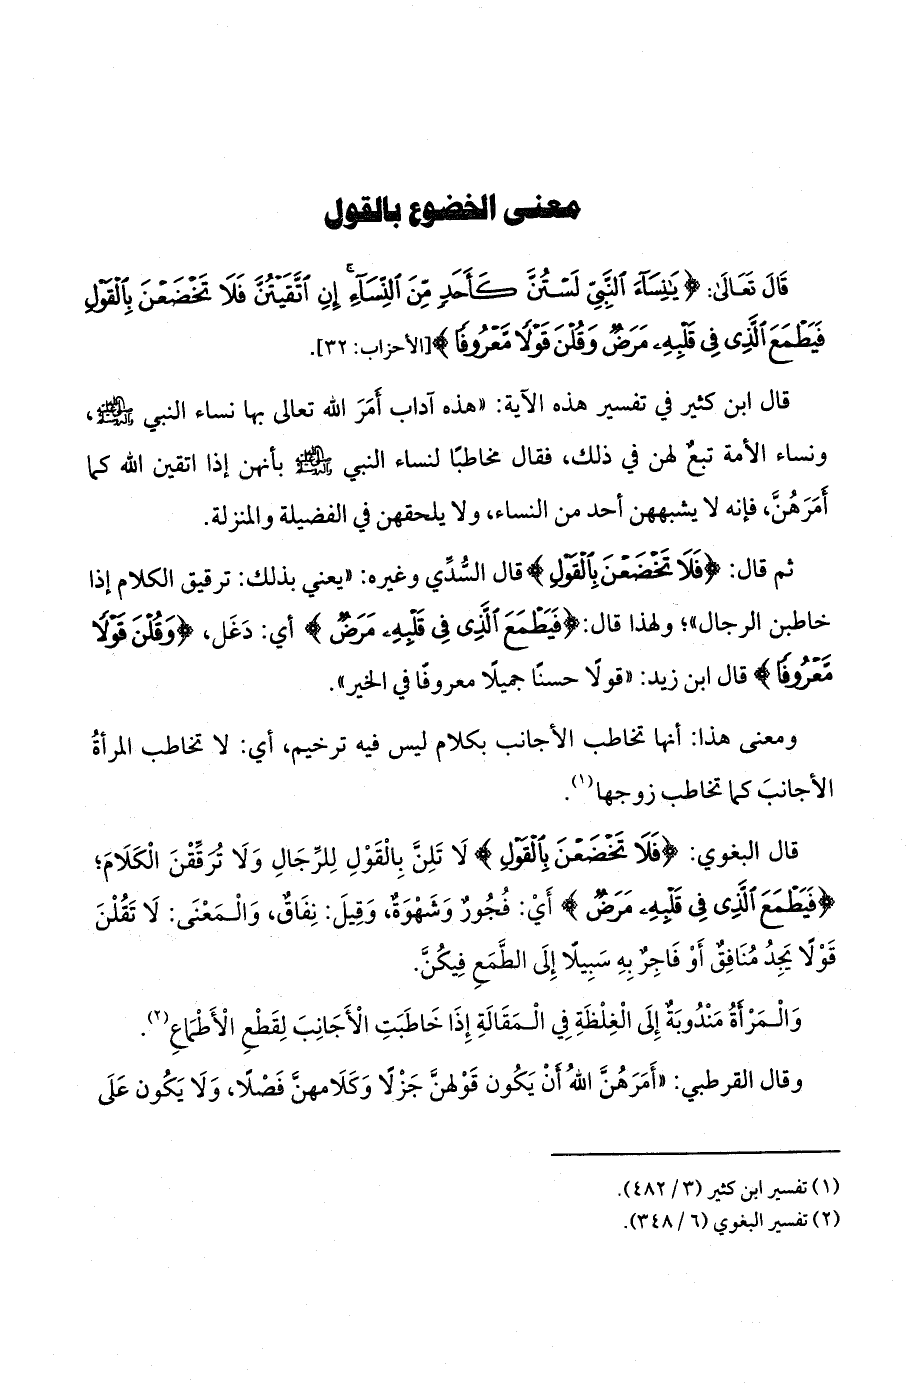 معنى الخضوع بالقول
قَالَ تَعَالَى: ﴿يَٰنِسَآءَ ٱلنَّبِيِّ لَسۡتُنَّ كَأَحَدٖ مِّنَ ٱلنِّسَآءِۚ إِنِ ٱتَّقَيۡتُنَّ فَلَا تَخۡضَعۡنَ بِٱلۡقَوۡلِ
فَيَطۡمَعَ ٱلَّذِي فِي قَلۡبِهِۦ مَرَضٞ وَقُلۡنَ قَوۡلٗا مَّعۡرُوفٗا﴾ [الأحزاب: ٣٢].
قال ابن كثير في تفسير هذه الآية: «هذه آداب أَمَرَ الله تعالى بها نساء النبي ﷺ،
ونساء الأمة تبعٌ لهن في ذلك، فقال مخاطبًا لنساء النبي ﷺ بأنهن إذا اتقين الله كما
أَمَرَهُنَّ، فإنه لا يشبههن أحد من النساء، ولا يلحقهن في الفضيلة والمنزلة.
ثم قال: ﴿فَلَا تَخۡضَعۡنَ بِٱلۡقَوۡلِ﴾ قال السُّدِّي وغيره: «يعني بذلك: ترقيق الكلام إذا
خاطبن الرجال»؛ ولهذا قال: ﴿فَيَطۡمَعَ ٱلَّذِي فِي قَلۡبِهِۦ مَرَضٞ﴾ أي: دَغَل، ﴿وَقُلۡنَ قَوۡلٗا
مَّعۡرُوفٗا﴾ قال ابن زيد: «قولًا حسنًا جميلًا معروفًا في الخير».
ومعنى هذا: أنها تخاطب الأجانب بكلام ليس فيه ترخيم، أي: لا تخاطب المرأةُ
الأجانبَ كما تخاطب زوجها(١).
قال البغوي: ﴿فَلَا تَخۡضَعۡنَ بِٱلۡقَوۡلِ﴾ لَا تَلِنَّ بِالْقَوْلِ لِلرِّجَالِ وَلَا تُرَقِّقْنَ الْكَلَامَ؛
﴿فَيَطۡمَعَ ٱلَّذِي فِي قَلۡبِهِۦ مَرَضٞ﴾ أَيْ: فُجُورٌ وَشَهْوَةٌ، وَقِيلَ: نِفَاقٌ، وَالْمَعْنَى: لَا تَقُلْنَ
قَوْلًا يَجِدُ مُنَافِقٌ أَوْ فَاجِرٌ بِهِ سَبِيلًا إِلَى الطَّمَعِ فِيكُنَّ.
وَالْمَرْأَةُ مَنْدُوبَةٌ إِلَى الْغِلْظَةِ فِي الْمَقَالَةِ إِذَا خَاطَبَتِ الْأَجَانِبَ لِقَطْعِ الْأَطْمَاعِ(٢).
وقال القرطبي: «أَمَرَهُنَّ اللهُ أَنْ يَكُون قَوْلهنَّ جَزْلًا وَكَلَامهنَّ فَصْلًا، وَلَا يَكُون عَلَى
(١) تفسير ابن كثير (٣/ ٤٨٢).
(٢) تفسير البغوي (٦/ ٣٤٨).